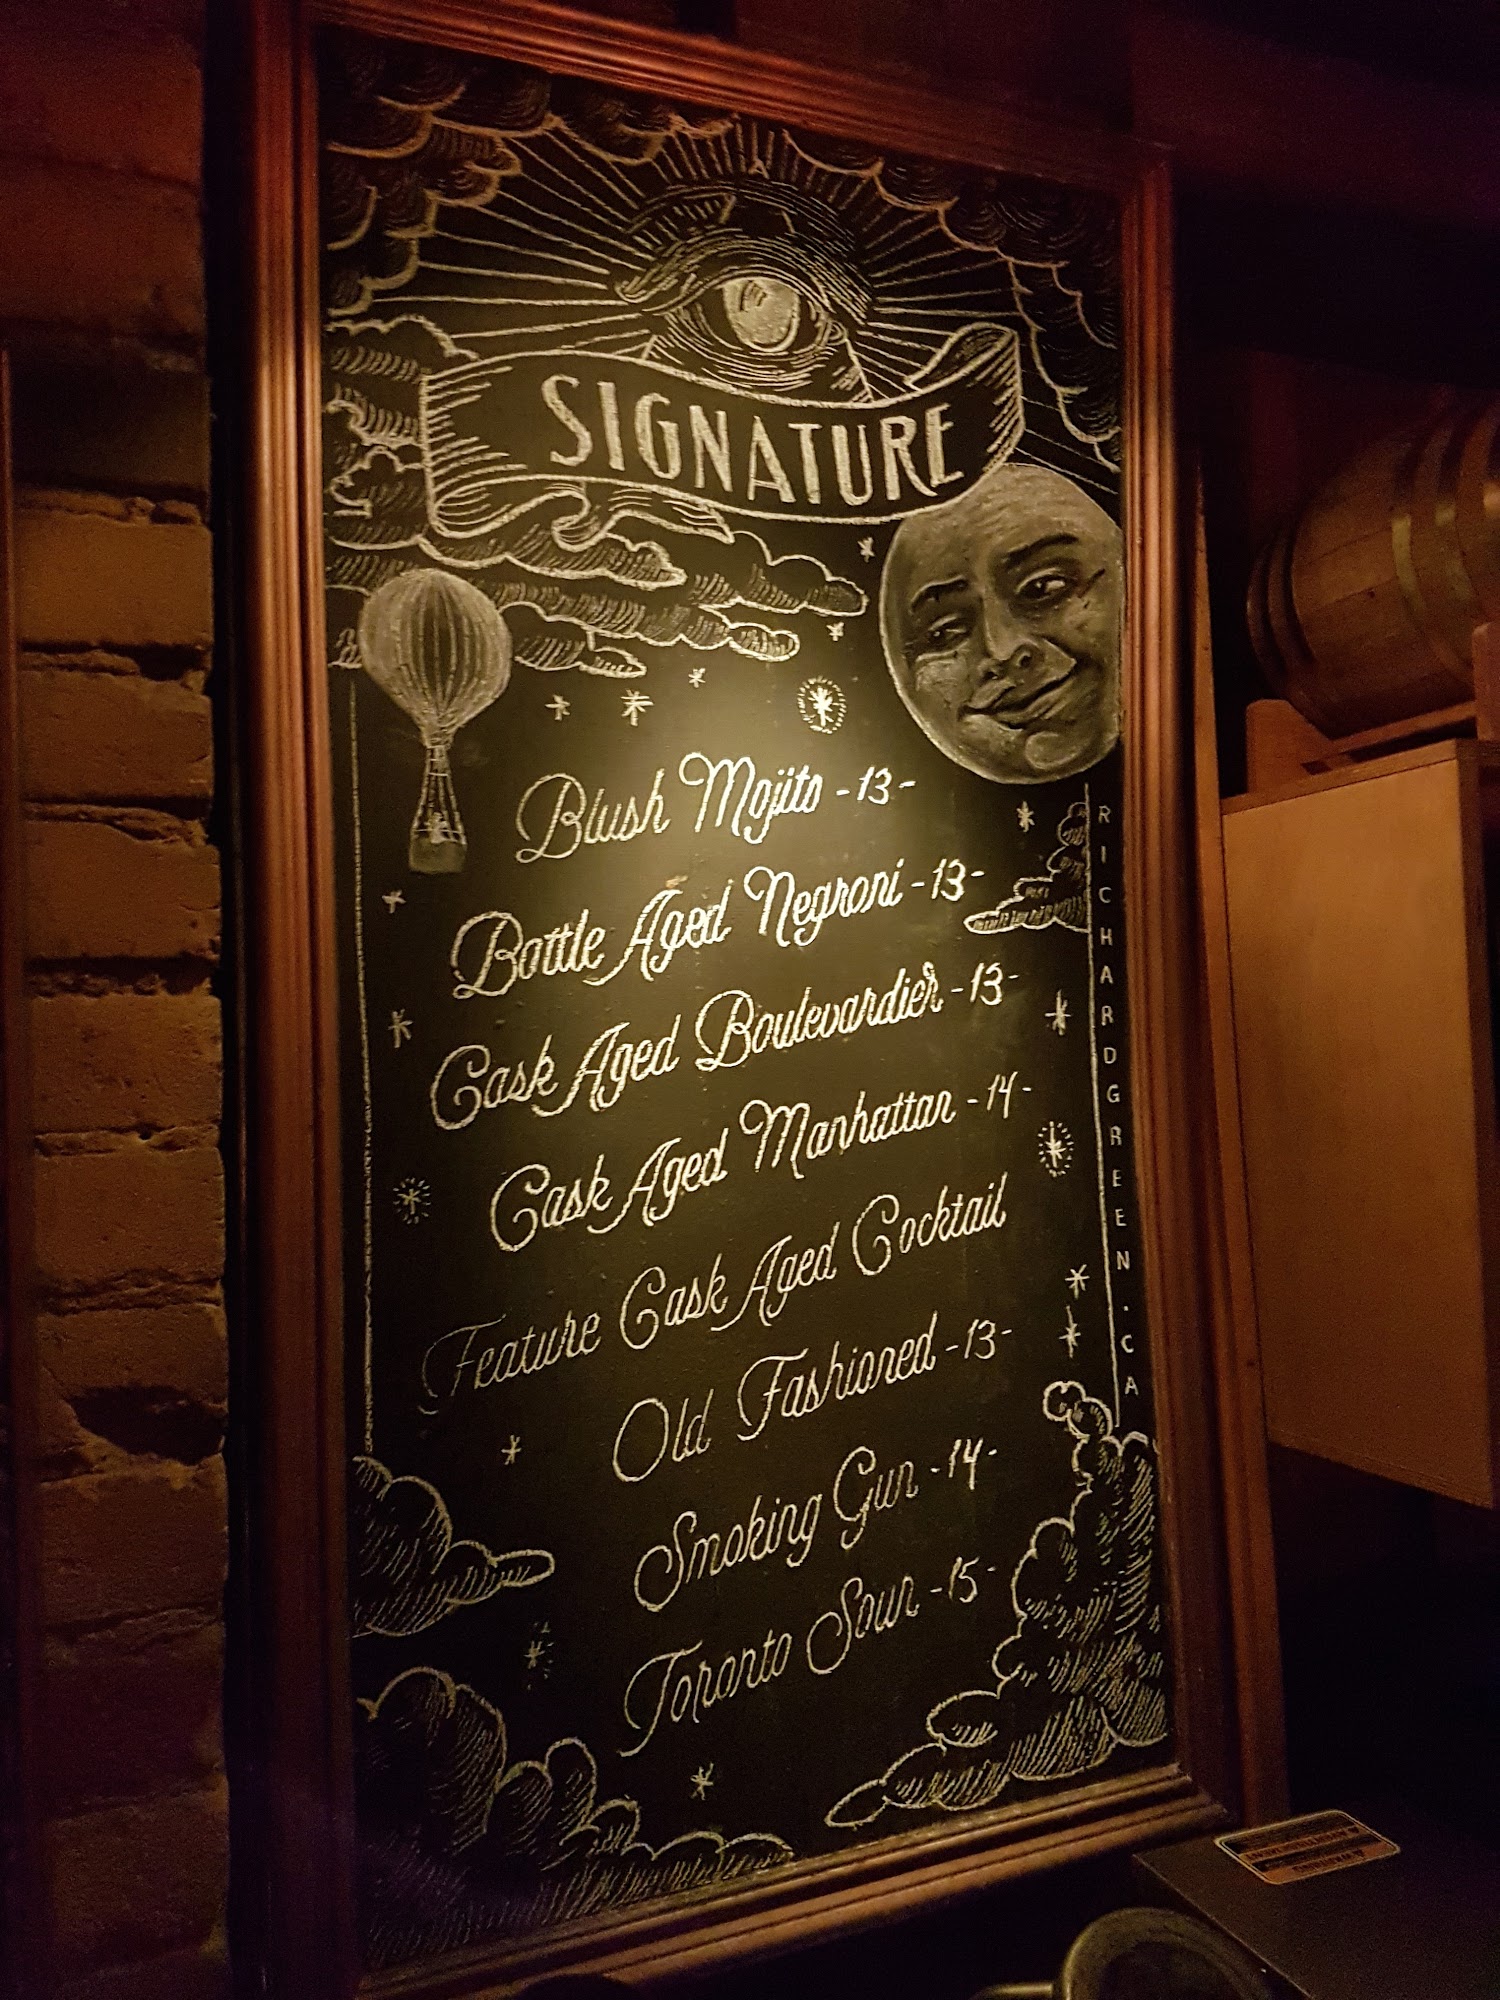 SIGNATURE
Blush Mojito -13-
Bottle Aged Negroni -13-
Cask Aged Boulevardier -13-
Cask Aged Manhattan -14-
Feature Cask Aged Cocktail
Old Fashioned -13-
Smoking Gun -14-
Toronto Sour -15-
RICHARDGREEN.CA
WARNING